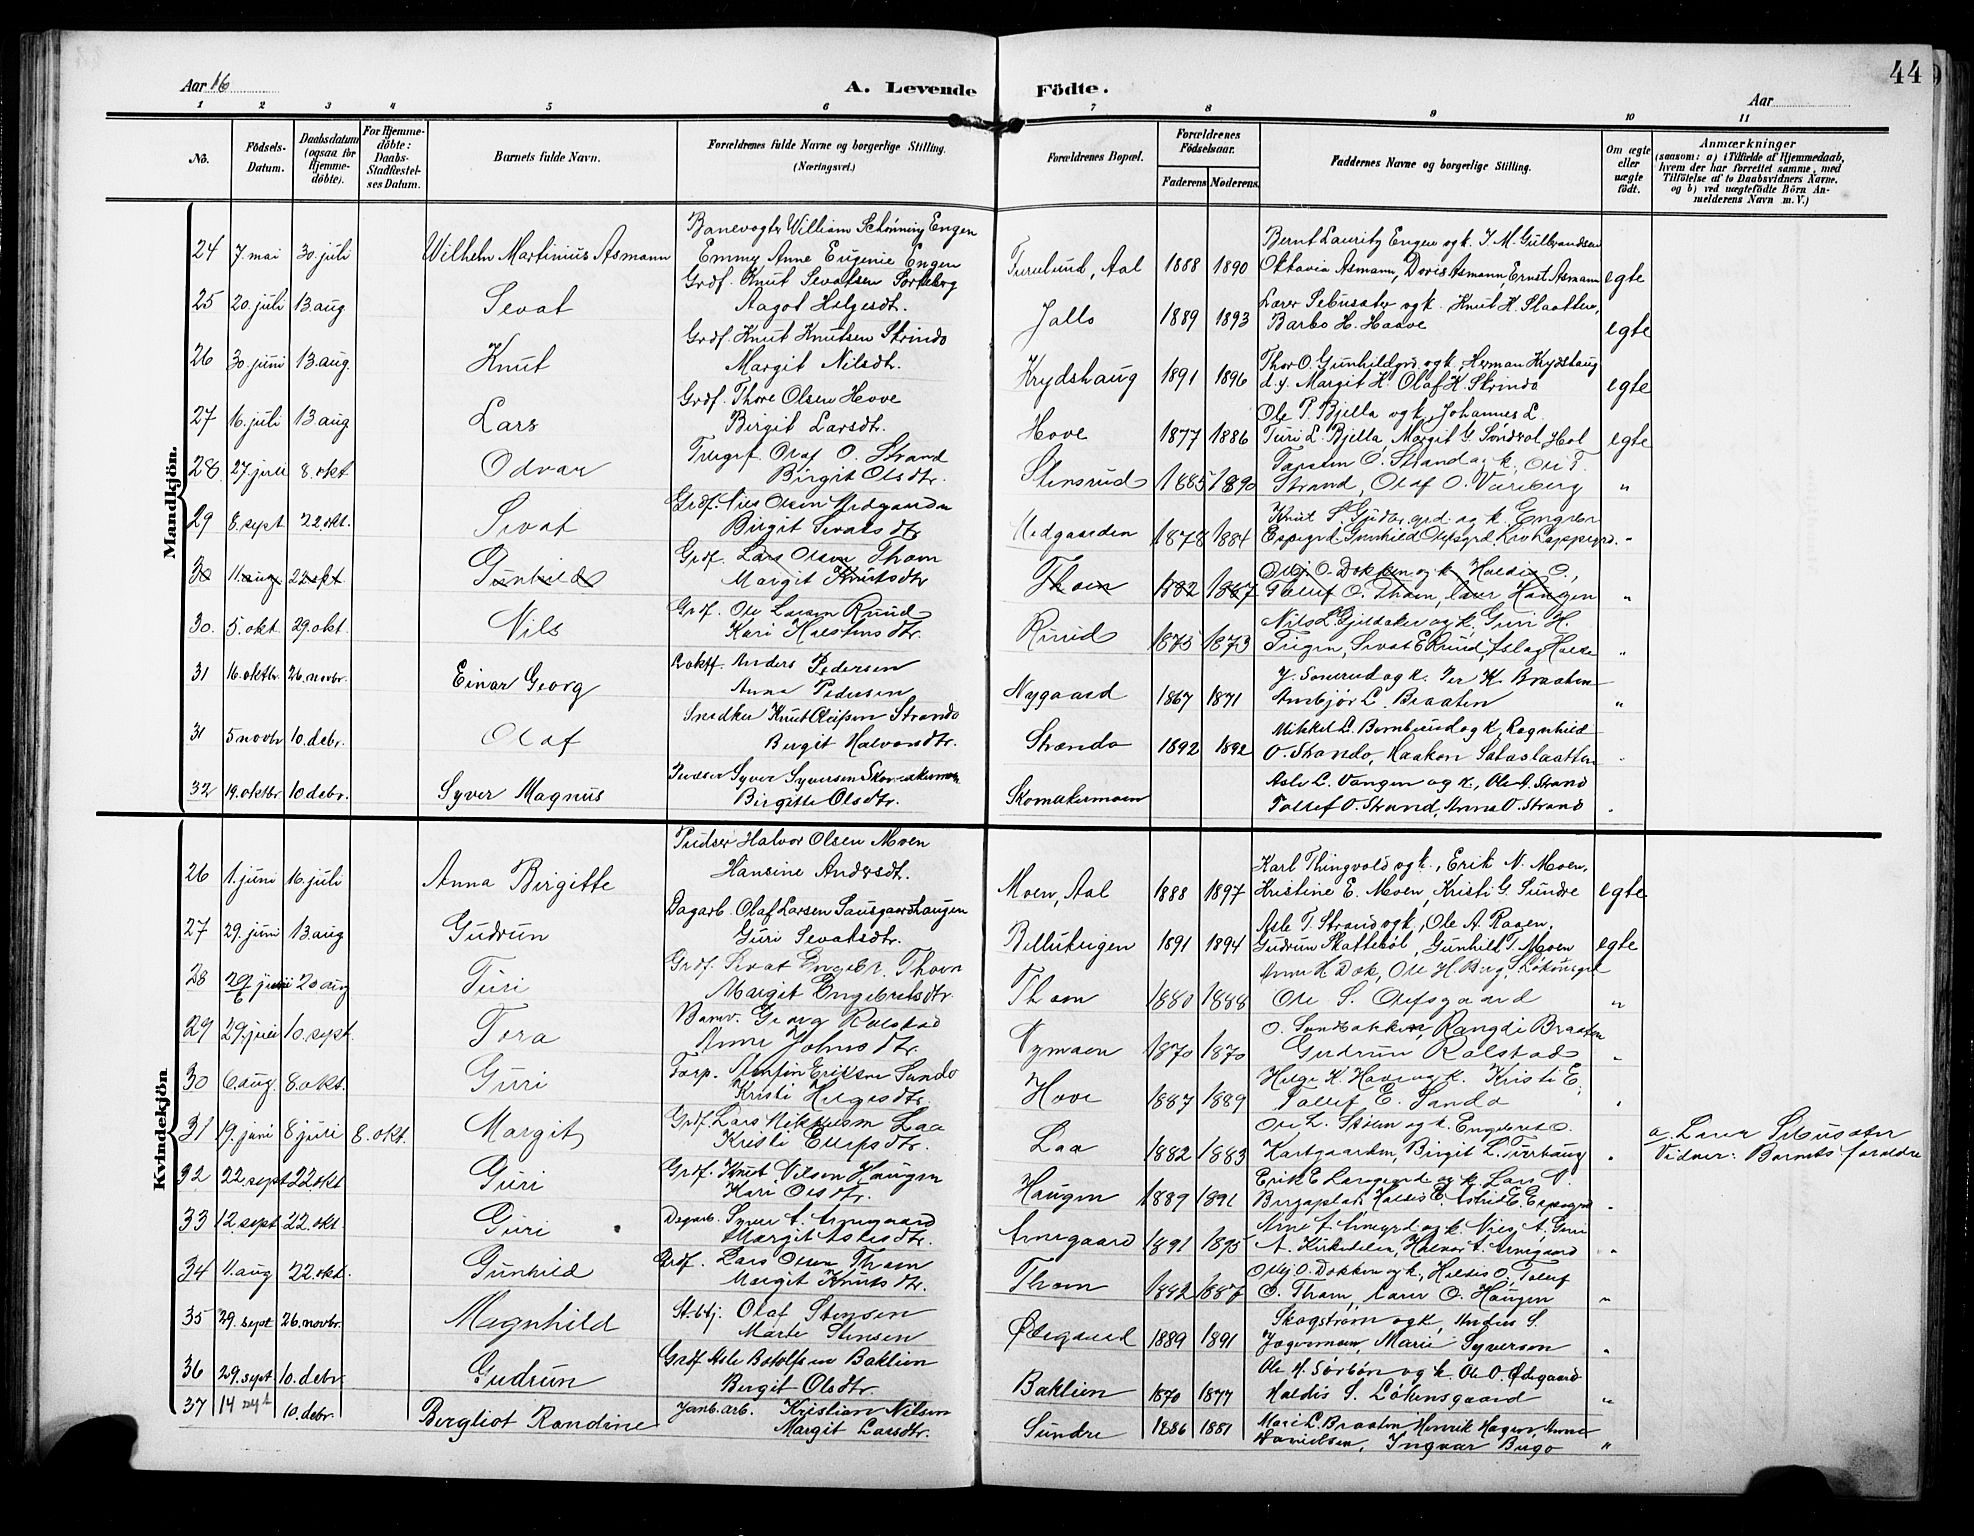 44
Aar 16
A. Levende Födte.
Aar
1 2 3 4 5 6 7 8 9 10 11
No.
Födsels-Datum.
Daabsdatum (ogsaa for Hjemme-döbte).
For Hjemme-döbte: Daabs-Stadfæstel-ses Datum.
Barnets fulde Navn.
Forældrenes fulde Navne og borgerlige Stilling. (Næringsvei.)
Forældrenes Bopæl.
Forældrenes Födselsaar.
Faderens. Moderens.
Faddernes Navne og borgerlige Stilling.
Om ægte eller uægte födt.
Anmærkninger
(saasom: a) i Tilfælde af Hjemmedaab, hvem der har forrettet samme, med Tilföielse af to Daabsvidners Navne. og b) ved uægtefödte Börn An-melderens Navn m. V.)
Mandkjön.
Banevogter William Schönning Engen
Bernt Lauritz Engen og k. J. M. Gulbrandsen
24 7. mai 30. juli Wilhelm Martinius Asmann Emmy Anne Eugenie Engen Aal 1888 1890 Oktavia Asmann, Doris Asmann, Ernst Asmann egte
Grdf. Knut Sevatsen Sorteberg
25 20. juli 13. aug Sevat Aagot Helgesdt. Jallo 1889 1893 Lærer Sebusæter og k. Knut H. Slaatten, Barbo H. Haave egte
Grdf. Knut Knutsen Strindo
26 30. juni 13. aug. Knut Margit Nilsdt. Krydshaug 1891 1896 Thor O. Gunhildgrd og k., Herman Krydshaug d.y. Margit K. Olaf K. Strindo egte
Grdf. Thore Olsen Hove
27 16. juli 13 aug Lars Birgit Larsdt. Hove 1877 1886 Ole P. Bjella og k, Johannes L. Turi L. Bjella, Margit G. Sundvol, Hol egte
Olaf O. Strand
28. 27. juli 8. okt Odvar Birgit Olsdt. Stensrud 1885 1890 Torsten O. Strand og k. Ole T. Strand, Olaf O. Varberg "
Grdf. Nils Olsen Nedgaarden
29 8. sept 22. okt. Sevat Birgit Sevatsdtr Nedgaarden 1878 1884 Knut S. og k. Engebr. Espegrd Gunhild Olefsgrd "
Grdf. Lars Olsen Thom
30 11. aug 22. okt Gunhild Margit Knutsdtr Thom 1882 1887 O. Dokken og k Haldis O., Tollef O. Thom, Haugen "
Grdf. Ole Larsen Ruud
30. 5. okt. 29. okt. Nils Kari Halstensdtr. Ruud 1875 1873 Nils L. og k, Guri H. Sevat E. Ruud, Aslag "
Anders Pedersen
31 16. oktbr. 26. novbr. Einar Georg Anna Pedersen Nygaard 1867 1871 J. Sonerud og k. Per K. Braaten Ambjør L. Braaten "
Snedker Knut Olefsen Strando
31 5 novbr 10. debr. Olaf Bergit Halvorsdtr. Strando 1892 1892 Mikkel L. og k, Ragnhild O. Strando, Haakon Sataslaatten "
Pudser Syver Syversen Skomakermoen
32 19. oktbr 10 debr. Syver Magnus Birgitte Olsdtr. Skomakermoen Asle L. Vangen og k, Ole A. Strand Tollef O. Strand, Anna O. Strand "
Kvindekjön
Pudser Halvor Olsen Moen
26 1. juni 16. juli Anna Birgitte Hansine Andersdt. Moen, Aal 1888 1897 Karl Thingvold og k, Erik N. Moen, Kristine E. Moen, Kristi G. Sundre egte
Dagarb. Olaf Larsen Sausgaardshaugen
27 29. juni 13. aug Gudrun Guri Sevatsdtr. 1891 1894 Asle T. Strand og k, Ole A. Raaen. Gudrun Skattebøl, Gunhild T. Moen egte
Grdf. Sevat Engebr. Thom
28 20 aug Turi Margit Engebretsdtr. Thom 1880 1888 Anne H. Dok, Ole H. Berg, Ole S. Olefsgaard "
Banv. Georg Ralstad
29 29. juli 10. sept. Tora Anne Johnsdtr. Nymoen 1870 1870 O. Sundbakken, Rangdi Braaten Gudrun Ralstad "
Torp. Arnfin Eriksen Sundo
30 6. aug. 8. okt. Guri Kristi Helgesdtr. Hove 1887 1889 Helge K. Hove og k. Kristi E. Tollef E. Sando "
Grdf. Lars Mikkelsen Laa
31 19. juni 8 juli 8. okt. Margit Kristi Ellefsdtr. Laa 1882 1883 Ole L. Stølen og k. Engebret O. Kartgaarden, Birgit L. Tverhaug "
a. Lærer Sebusæter
Vidner: Barnets foreldre
Grdf. Knut Nilsen Haugen
32 22 sept 22. okt Guri Kari Olsdtr. Haugen 1889 1891 Erik E. og k. Lars O. Haldis E. Espegrd "
Dagarb. Syver A. Arnegaard
33 12. sept 22. okt. Guri Margit Aslesdtr. Arnegaard 1891 1895 Arne A. Arnegrd og k. Nils A, Guri A. Kirkedelen, Halvor A. Arnegaard "
Grdf. Lars Olsen Thom
34 11. aug 22. okt. Gunhild Margit Knutsdtr. Thom 1882 1887 O. Dokken og k, Haldis O, Tollef O. Thom, O. Haugen "
St.btj. Olaf Stensen
35 29. sept 26. novbr. Magnhild Marte Stensen Ødegaard 1889 1891 Skogstrøm og k, Anders S. Marie Syversen "
Grdf Asle Botolfsen Baklien
36 29. sept 10. debr. Gudrun Bergit Olsdtr. Baklien 1870 1877 Ole H. Sørbøn og k. Ole O. Ødegaard Haldis S. Løkensgaard "
37 14 10. debr. Bergliot Randine Janb. arb. Kristian Nilsen Margit Larsdtr. Sundre 1886 1881 Mari L. Braaten, Henrik Hagen, Anna Danielsen, Ingvar Bugo "